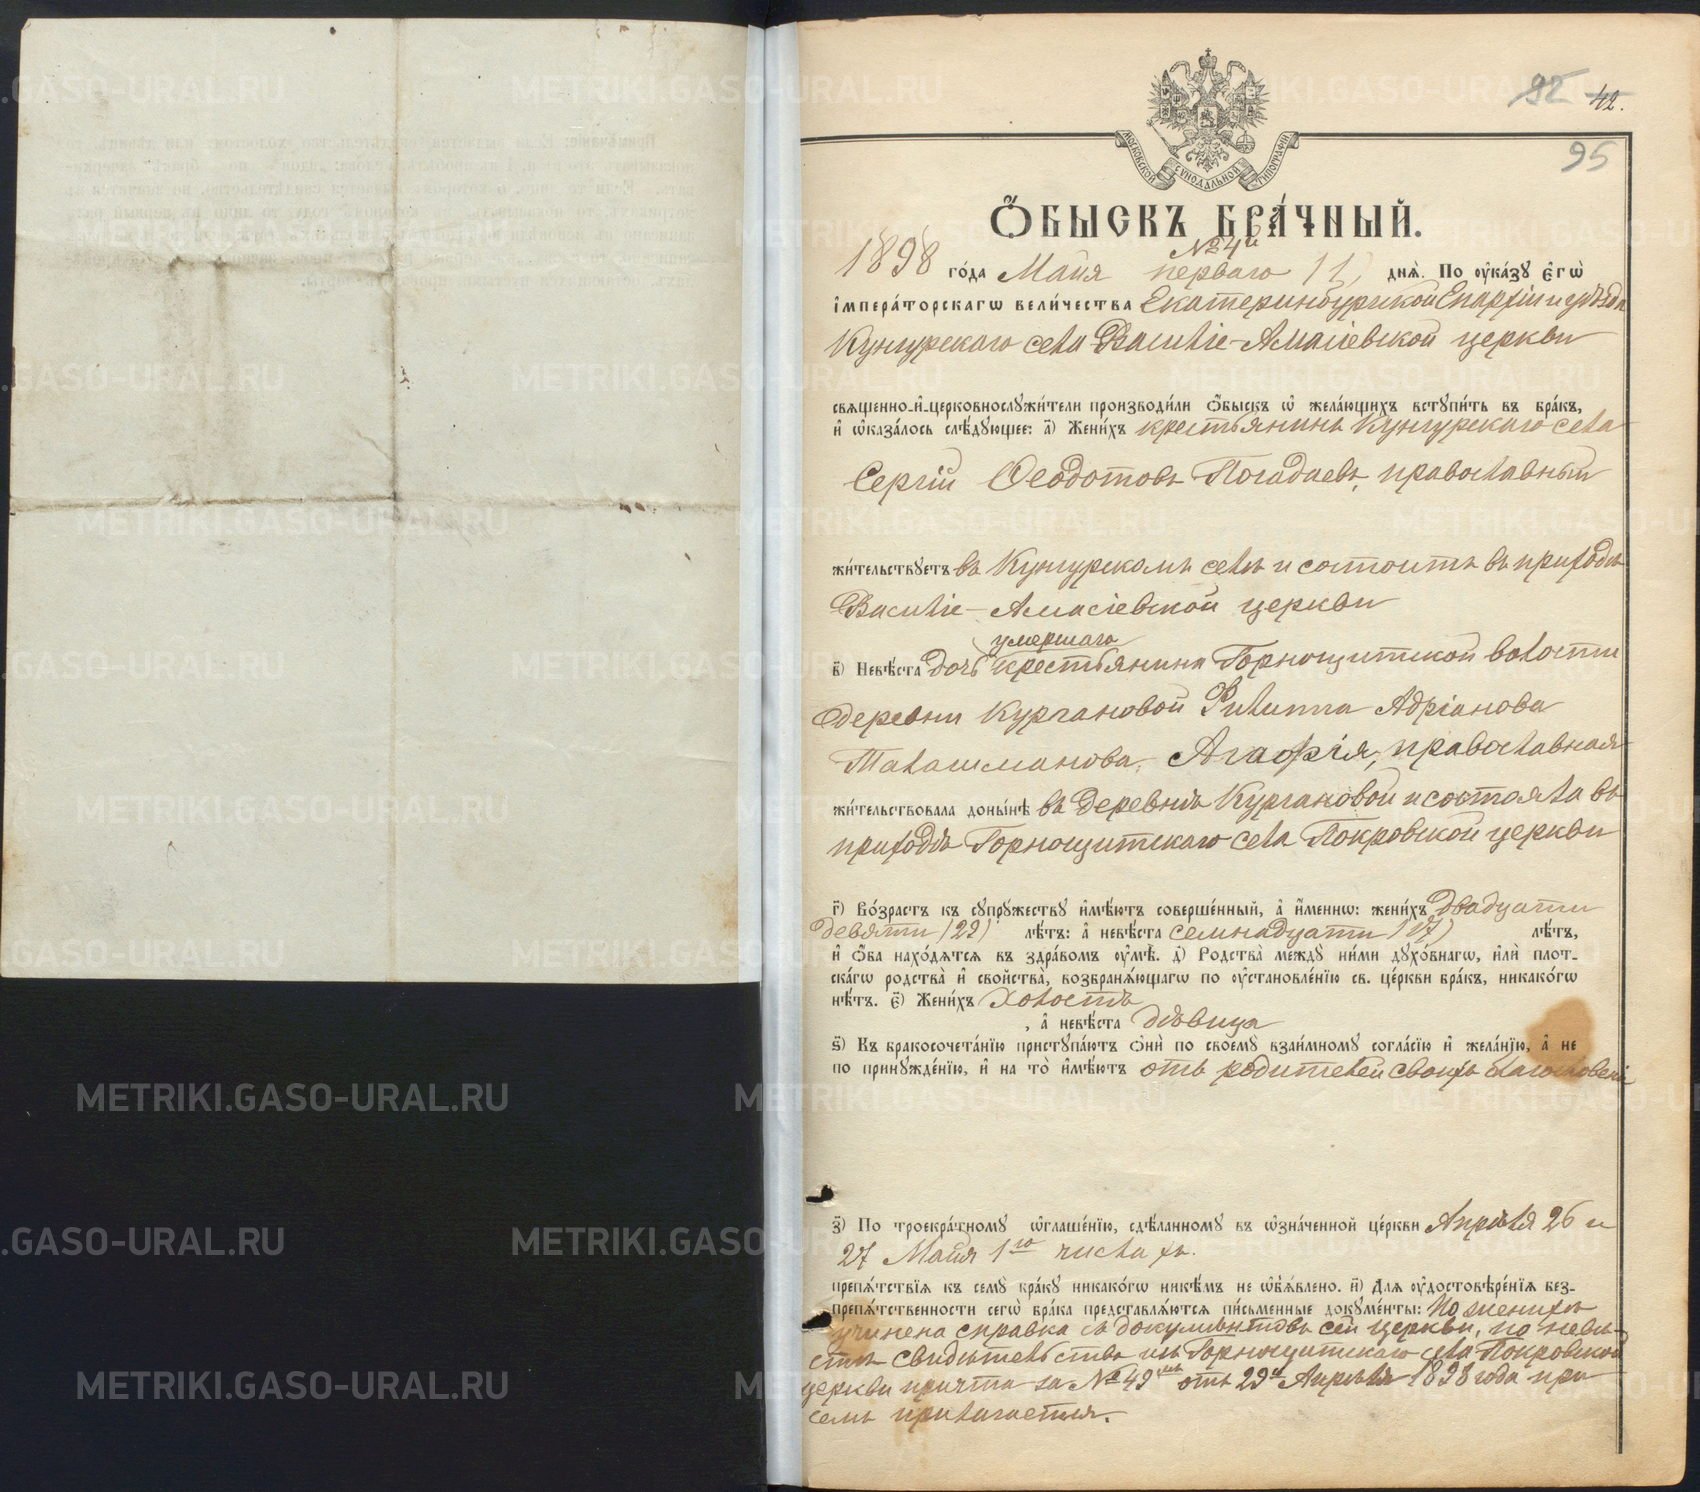 92 42.
95
МОСКОВСКОЙ СѴНОДАЛЬНОЙ ТИПОГРАФІИ
Ѻ҆БЫСКЪ БРА́ЧНЫЙ.
№ 4й
1898 го́да Майя перваго (1) днѧ̀. По ᲂу҆ка́зꙋ є҆гѡ̀
і҆мпера́торскагѡ вели́чества Екатеринбургской Епархіи и уѣзда
Кунгурскаго села Василіе-Амасіевской церкви
свѧщенно-и҆-церковнослꙋжи́тели производи́ли ѻ҆́быскъ ѡ҆ жела́ющихъ встꙋпи́ть въ бра́къ,
и҆ ѡ҆каза́лось слѣ́дꙋющее: а҃) Жени́хъ крестьянинъ Кунгурскаго села
Сергій Ѳеодотовъ Погадаевъ, православный
жи́тельствꙋетъ въ Кунгурскомъ селѣ и состоитъ въ приходѣ
Василіе-Амасіевской церкви
умершаго
в҃) Невѣ́ста дочь крестьянина Горнощитской волости
деревни Кургановой Филиппа Адріанова
Талашманова, Агафія, православная
жи́тельствовала доны́нѣ въ деревнѣ Кургановой и состояла въ
приходѣ Горнощитскаго села Покровской церкви
г҃) Во́зрастъ къ сꙋпрꙋ́жествꙋ и҆мѣ́ютъ соверше́нный, а҆ и҆́меннѡ: жени́хъ двадцати
девяти (29) лѣ́тъ: а҆ невѣ́ста семнадцати (17) лѣ́тъ,
и҆ ѻ҆́ба нахо́дѧтсѧ въ здра́вомъ ᲂу҆мѣ̀. д҃) Родства̀ междꙋ̀ ни́ми дꙋхо́внагѡ, и҆лѝ плот-
ска́гѡ родства̀ и҆ сво́йства, возбранѧ́ющагѡ по ᲂу҆становле́нїю св. це́ркви бра́къ, никако́гѡ
нѣ́тъ. є҃) Жени́хъ холостъ
, а҆ невѣ́ста дѣвица
ѕ҃) Къ бракосочета́нїю пристꙋпа́ютъ ѻ҆нѝ по своемꙋ̀ взаи́мномꙋ согла́сїю и҆ жела́нїю, а҆ не
по принꙋжде́нїю, и҆ на то̀ и҆мѣ́ютъ отъ родителей своихъ благословеніе
з҃) По троекра́тномꙋ ѡ҆глаше́нїю, сдѣ́ланномꙋ въ ѡ҆зна́ченной це́ркви Апрѣля 26 и
27 Майя 1го числахъ.
препѧ́тствїѧ къ семꙋ̀ бра́кꙋ никако́гѡ никѣ́мъ не ѡ҆б̾ѧ́влено. и҃) Длѧ ᲂу҆достовѣре́нїѧ без-
препѧ́тственности сегѡ̀ бра́ка представлѧ́ютсѧ пи́сьменные докꙋме́нты: По женихѣ
учинена справка съ документовъ сей церкви, по невѣ-
стѣ свидѣтельство изъ Горнощитскаго села Покровской
церкви причта за № 49мъ отъ 29й Апрѣля 1898 года при
семъ прилагается.